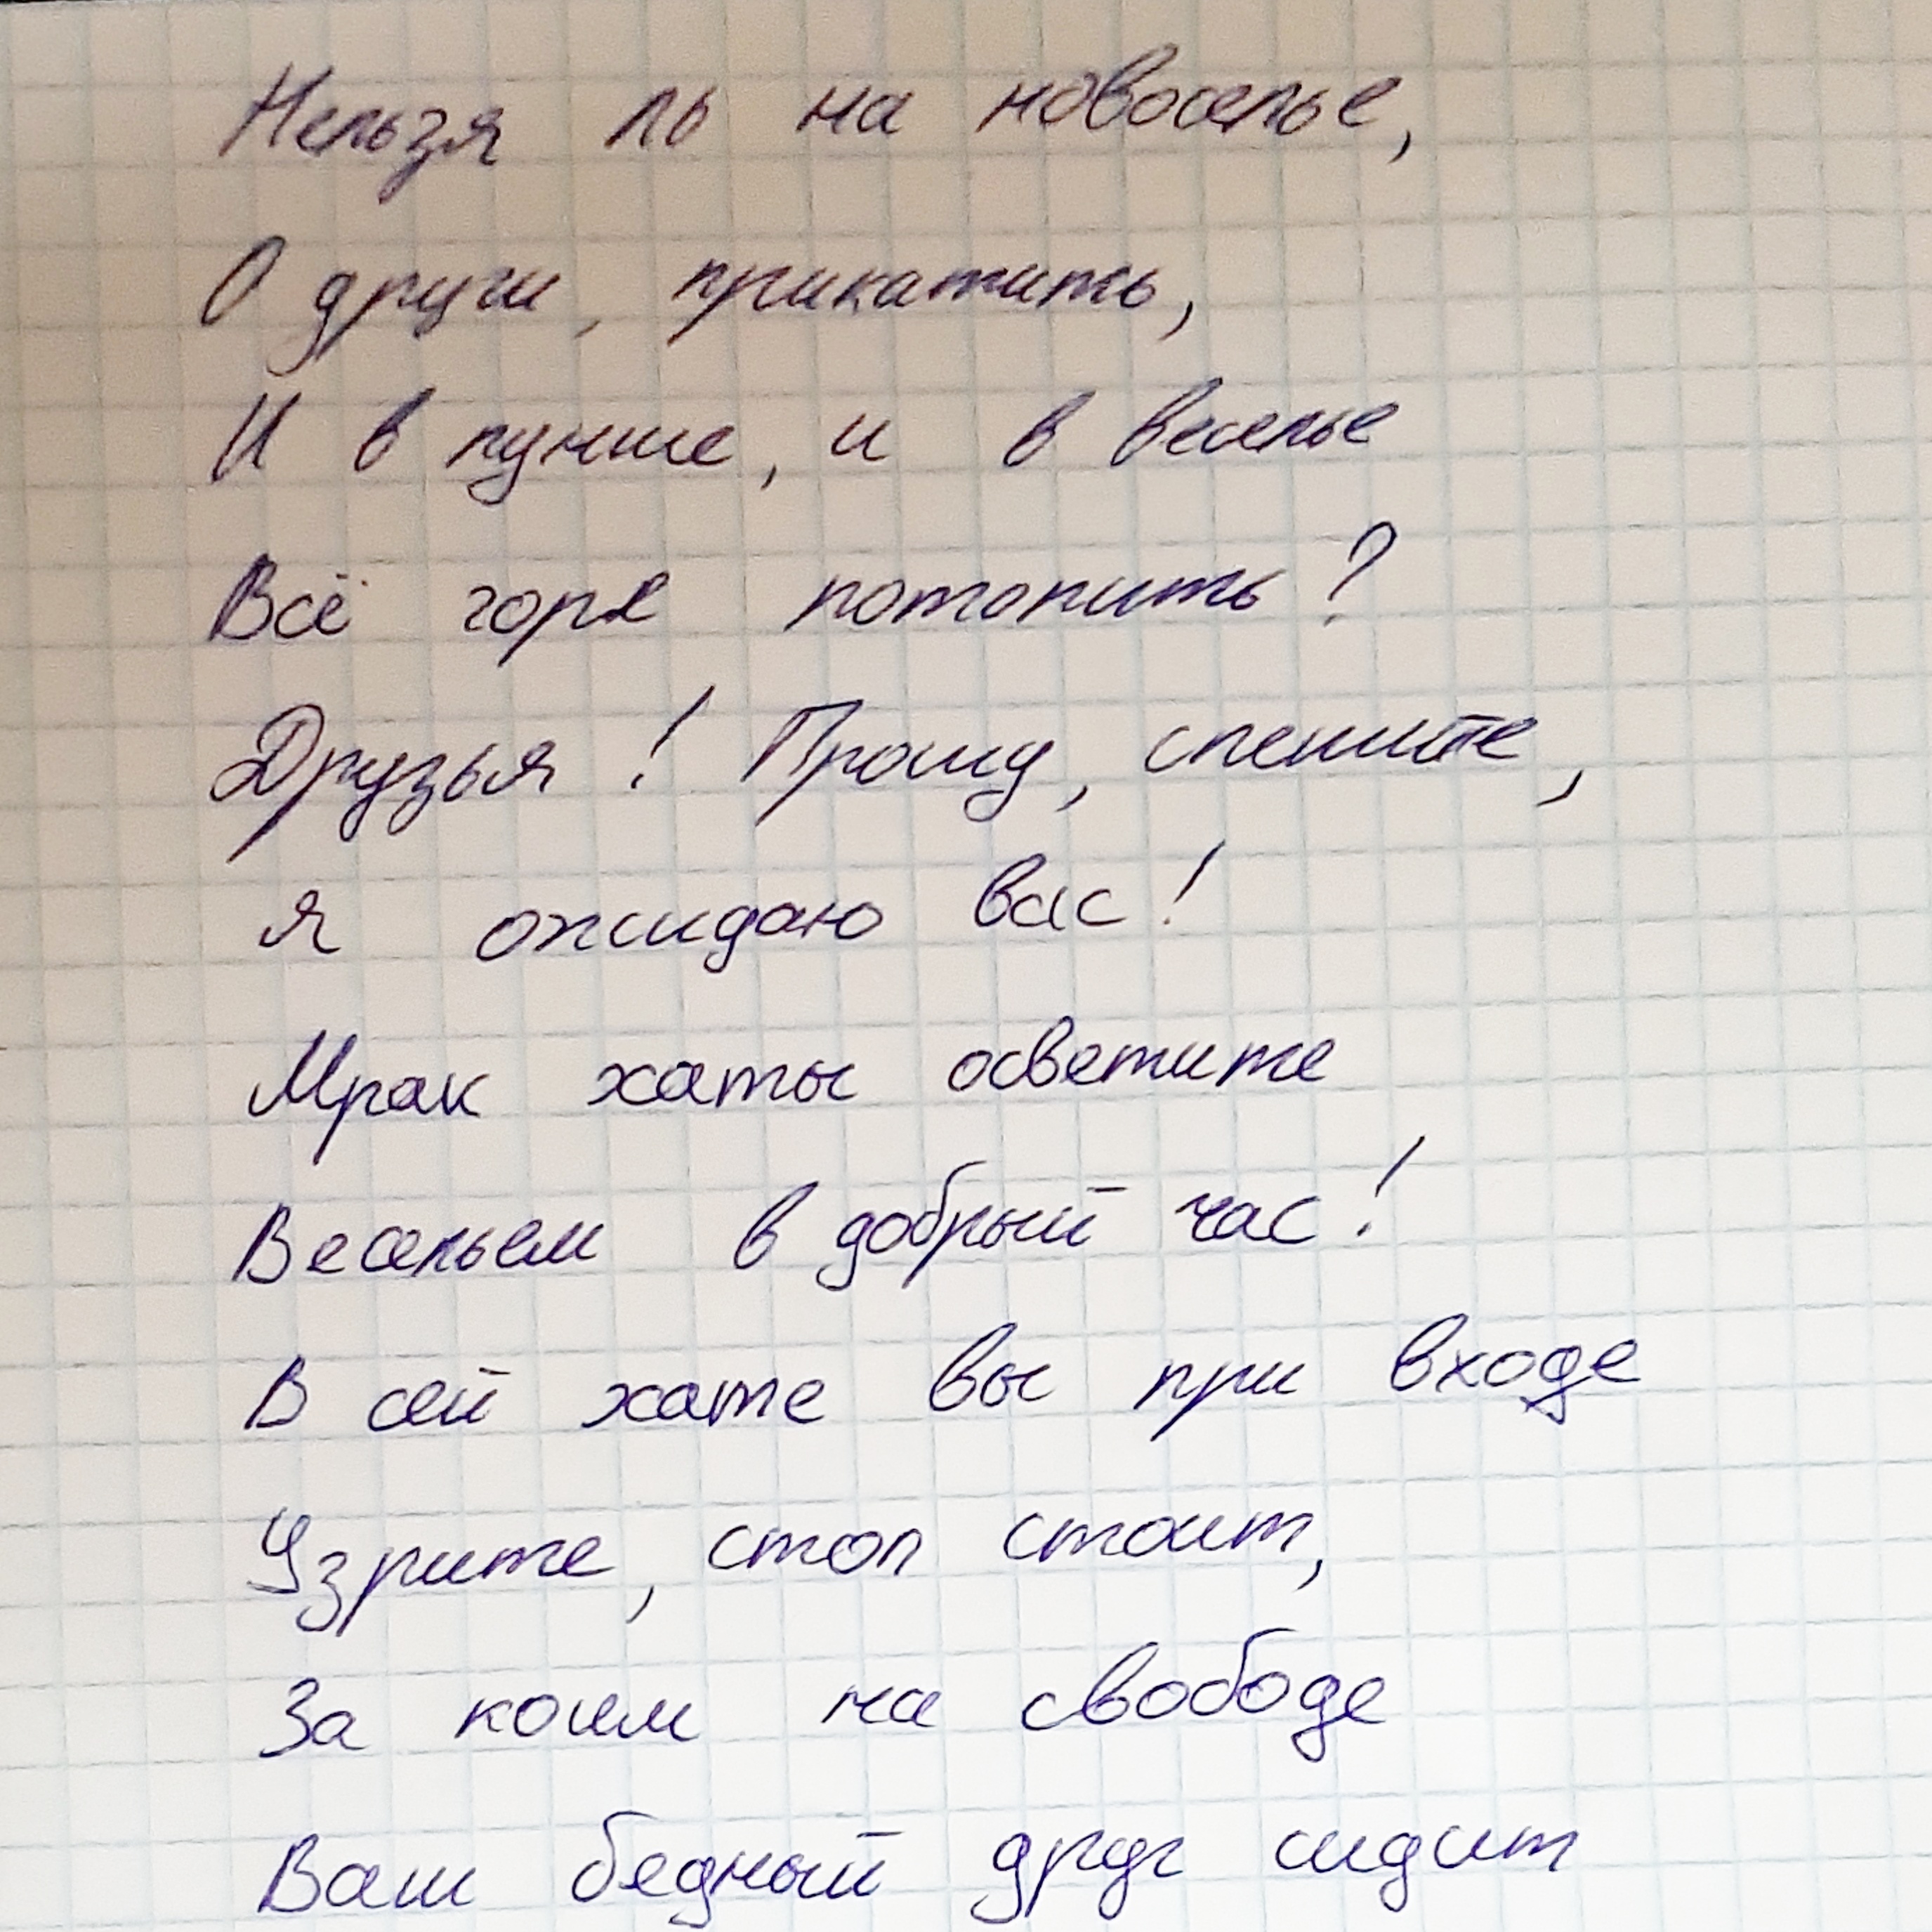 Нельзя ль на новоселье,
О други, прикатить,
И в пунше, и в веселье
Всё горе потопить?
Друзья! Прошу, спешите,
Я ожидаю вас!
Мрак хаты осветите
Весельем в добрый час!
В сей хате вы при входе
Узрите, стол стоит,
За коим на свободе
Ваш бедный друг сидит